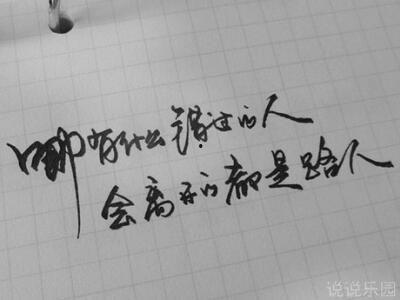 哪有什么错过的人
会离开的都是路人
说说乐园